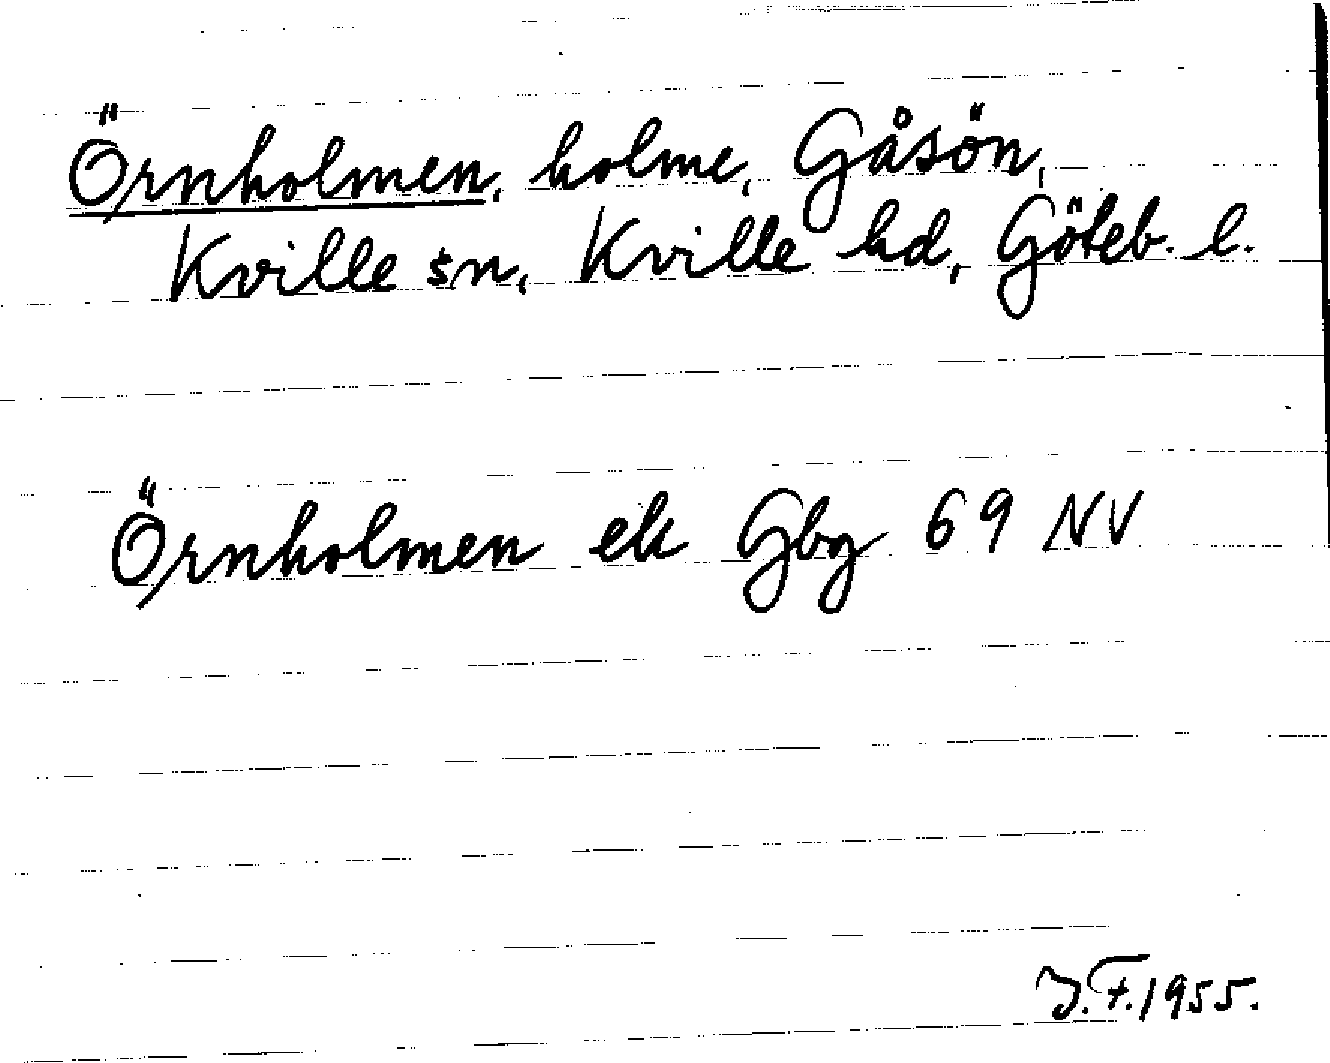 Örnholmen, holme, Gåsön,
Kville sn, Kville hd, Göteb. l.
Örnholmen ek Gbg 69 NV
J.F. 1955.